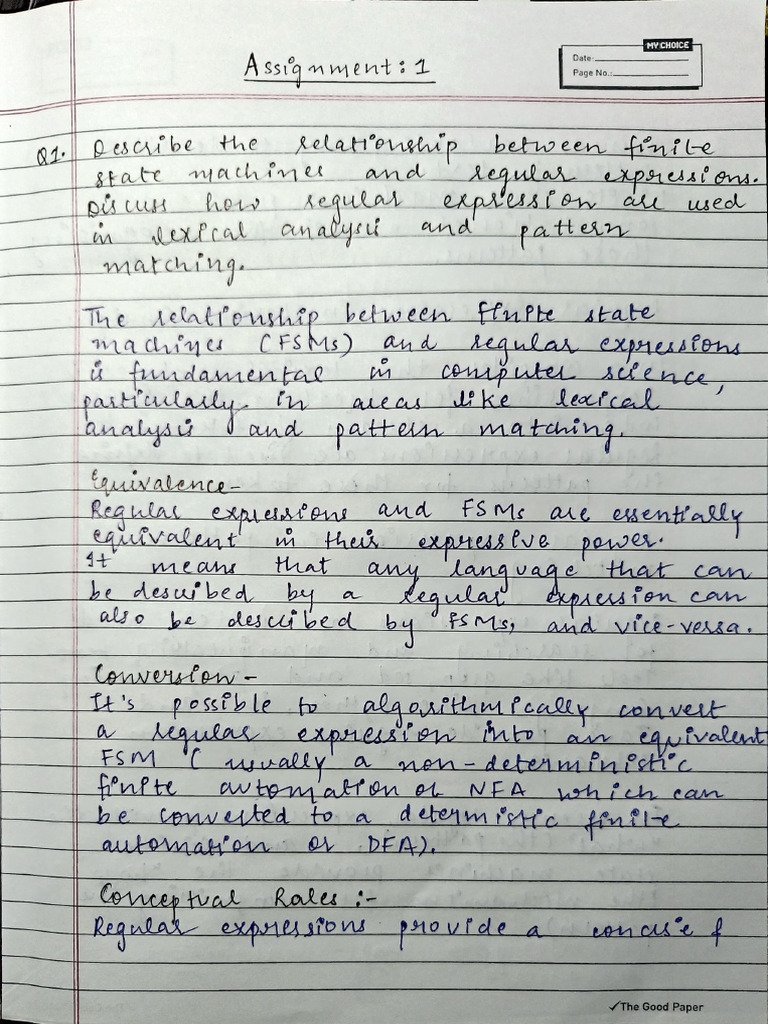 Assignment: 1
MY CHOICE
Date:
Page No.:
Q1. Describe the relationship between finite
state machines and regular expressions.
Discuss how regular expression are used
in lexical analysis and pattern
matching.
The relationship between finite state
machines (FSMs) and regular expressions
is fundamental in computer science,
particularly in areas like lexical
analysis and pattern matching.
Equivalence-
Regular expressions and FSMs are essentially
equivalent in their expressive power.
It means that any language that can
be described by a regular expression can
also be described by FSMs, and vice-versa.
Conversion-
It's possible to algorithmically convert
a regular expression into an equivalent
FSM (usually a non-deterministic
finite automation or NFA which can
be converted to a determistic finite
automation or DFA).
Conceptual Roles:-
Regular expressions provide a concise f
✓The Good Paper